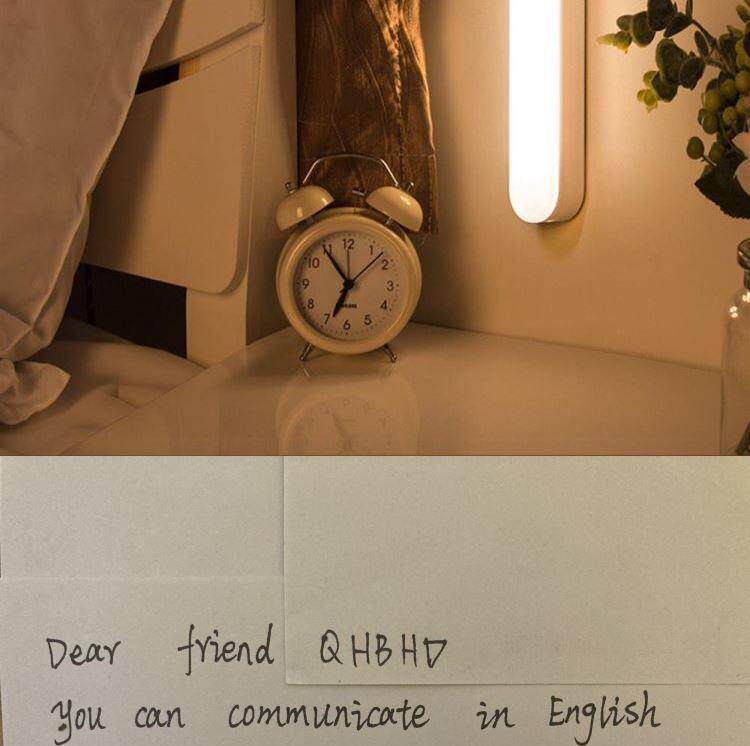 12
11 1
10 2
9 3
8 4
7 5
6
Dear friend QHBHD
You can communicate in English